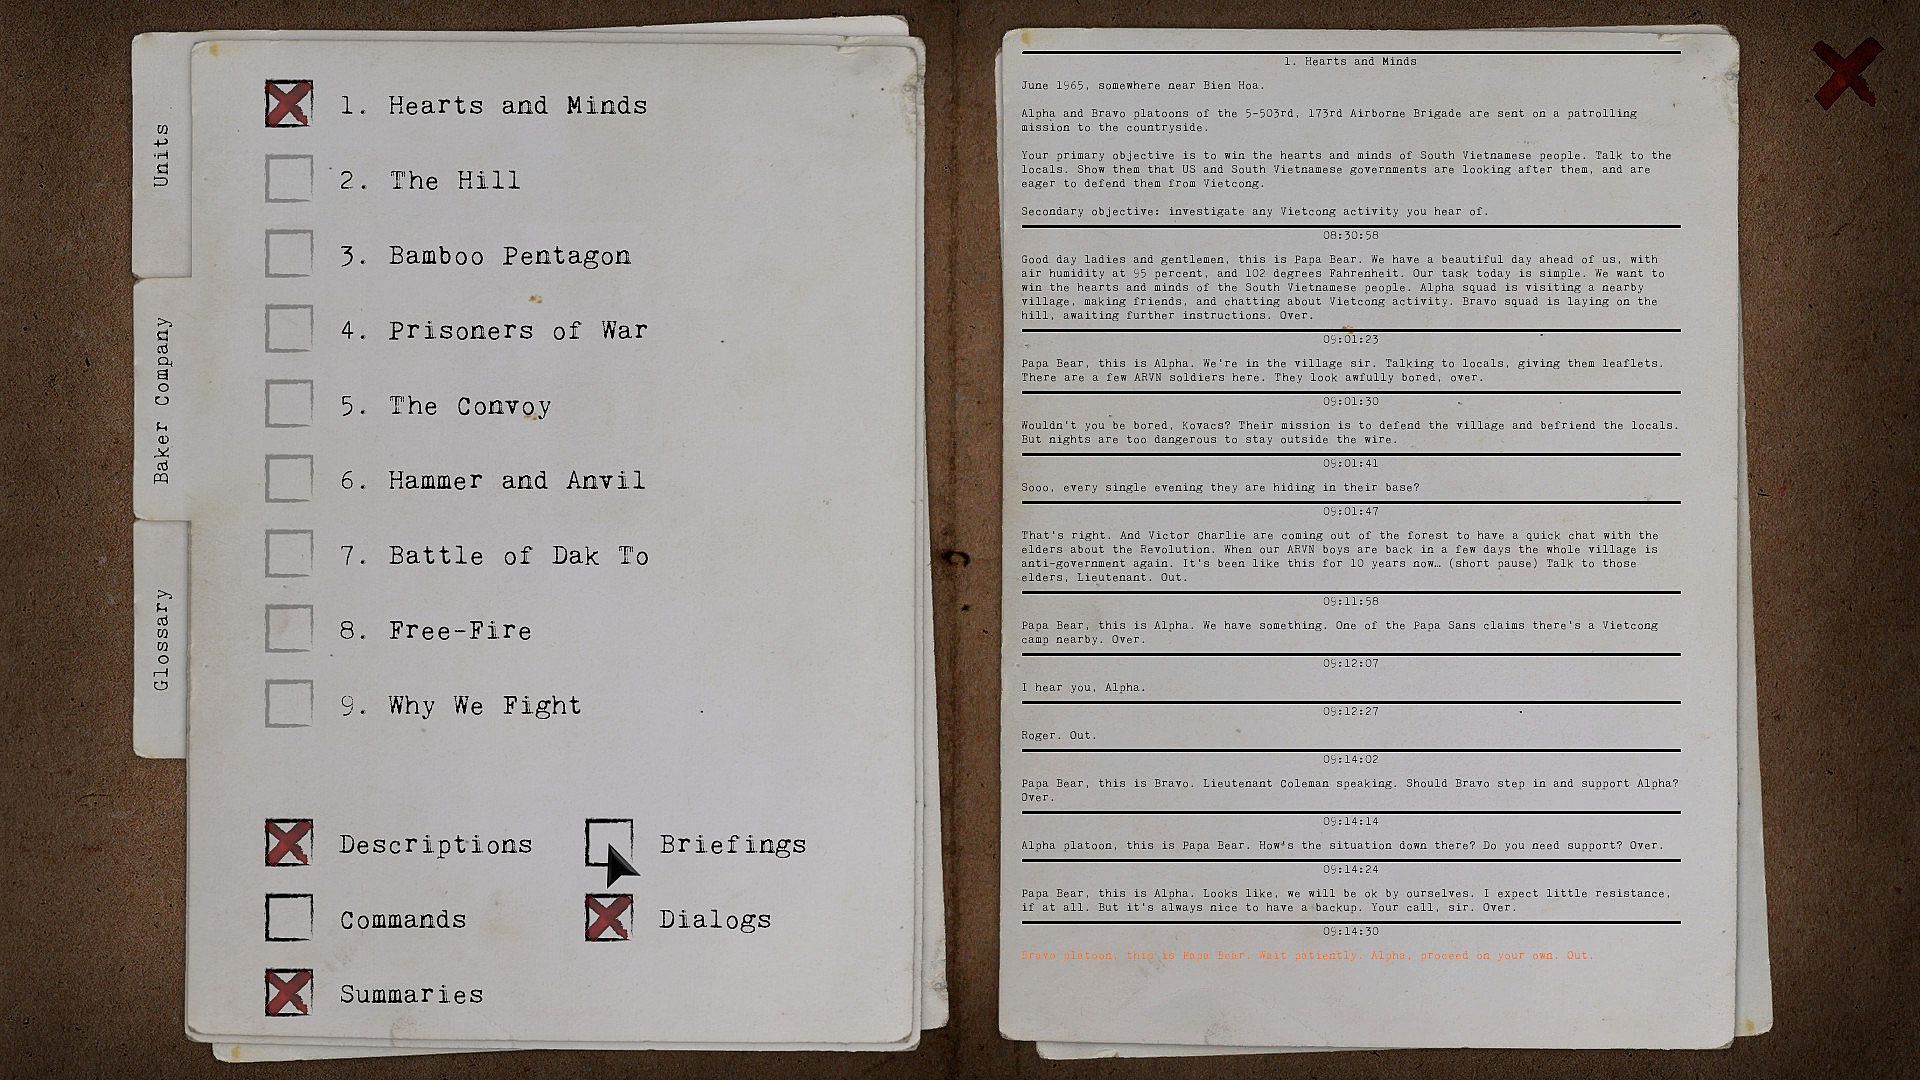 Units
Baker Company
Glossary
1. Hearts and Minds
2. The Hill
3. Bamboo Pentagon
4. Prisoners of War
5. The Convoy
6. Hammer and Anvil
7. Battle of Dak To
8. Free-Fire
9. Why We Fight
Descriptions
Briefings
Commands
Dialogs
Summaries
1. Hearts and Minds
June 1965, somewhere near Bien Hoa.
Alpha and Bravo platoons of the 5-503rd, 173rd Airborne Brigade are sent on a patrolling
mission to the countryside.
Your primary objective is to win the hearts and minds of South Vietnamese people. Talk to the
locals. Show them that US and South Vietnamese governments are looking after them, and are
eager to defend them from Vietcong.
Secondary objective: investigate any Vietcong activity you hear of.
08:30:58
Good day ladies and gentlemen, this is Papa Bear. We have a beautiful day ahead of us, with
air humidity at 95 percent, and 102 degrees Fahrenheit. Our task today is simple. We want to
win the hearts and minds of the South Vietnamese people. Alpha squad is visiting a nearby
village, making friends, and chatting about Vietcong activity. Bravo squad is laying on the
hill, awaiting further instructions. Over.
09:01:23
Papa Bear, this is Alpha. We're in the village sir. Talking to locals, giving them leaflets.
There are a few ARVN soldiers here. They look awfully bored, over.
09:01:30
Wouldn't you be bored, Kovacs? Their mission is to defend the village and befriend the locals.
But nights are too dangerous to stay outside the wire.
09:01:41
Sooo, every single evening they are hiding in their base?
09:01:47
That's right. And Victor Charlie are coming out of the forest to have a quick chat with the
elders about the Revolution. When our ARVN boys are back in a few days the whole village is
anti-government again. It's been like this for 10 years now… (short pause) Talk to those
elders, Lieutenant. Out.
09:11:58
Papa Bear, this is Alpha. We have something. One of the Papa Sans claims there's a Vietcong
camp nearby. Over.
09:12:07
I hear you, Alpha.
09:12:27
Roger. Out.
09:14:02
Papa Bear, this is Bravo. Lieutenant Coleman speaking. Should Bravo step in and support Alpha?
Over.
09:14:14
Alpha platoon, this is Papa Bear. How's the situation down there? Do you need support? Over.
09:14:24
Papa Bear, this is Alpha. Looks like, we will be ok by ourselves. I expect little resistance,
if at all. But it's always nice to have a backup. Your call, sir. Over.
09:14:30
Bravo platoon, this is Papa Bear. Wait patiently. Alpha, proceed on your own. Out.